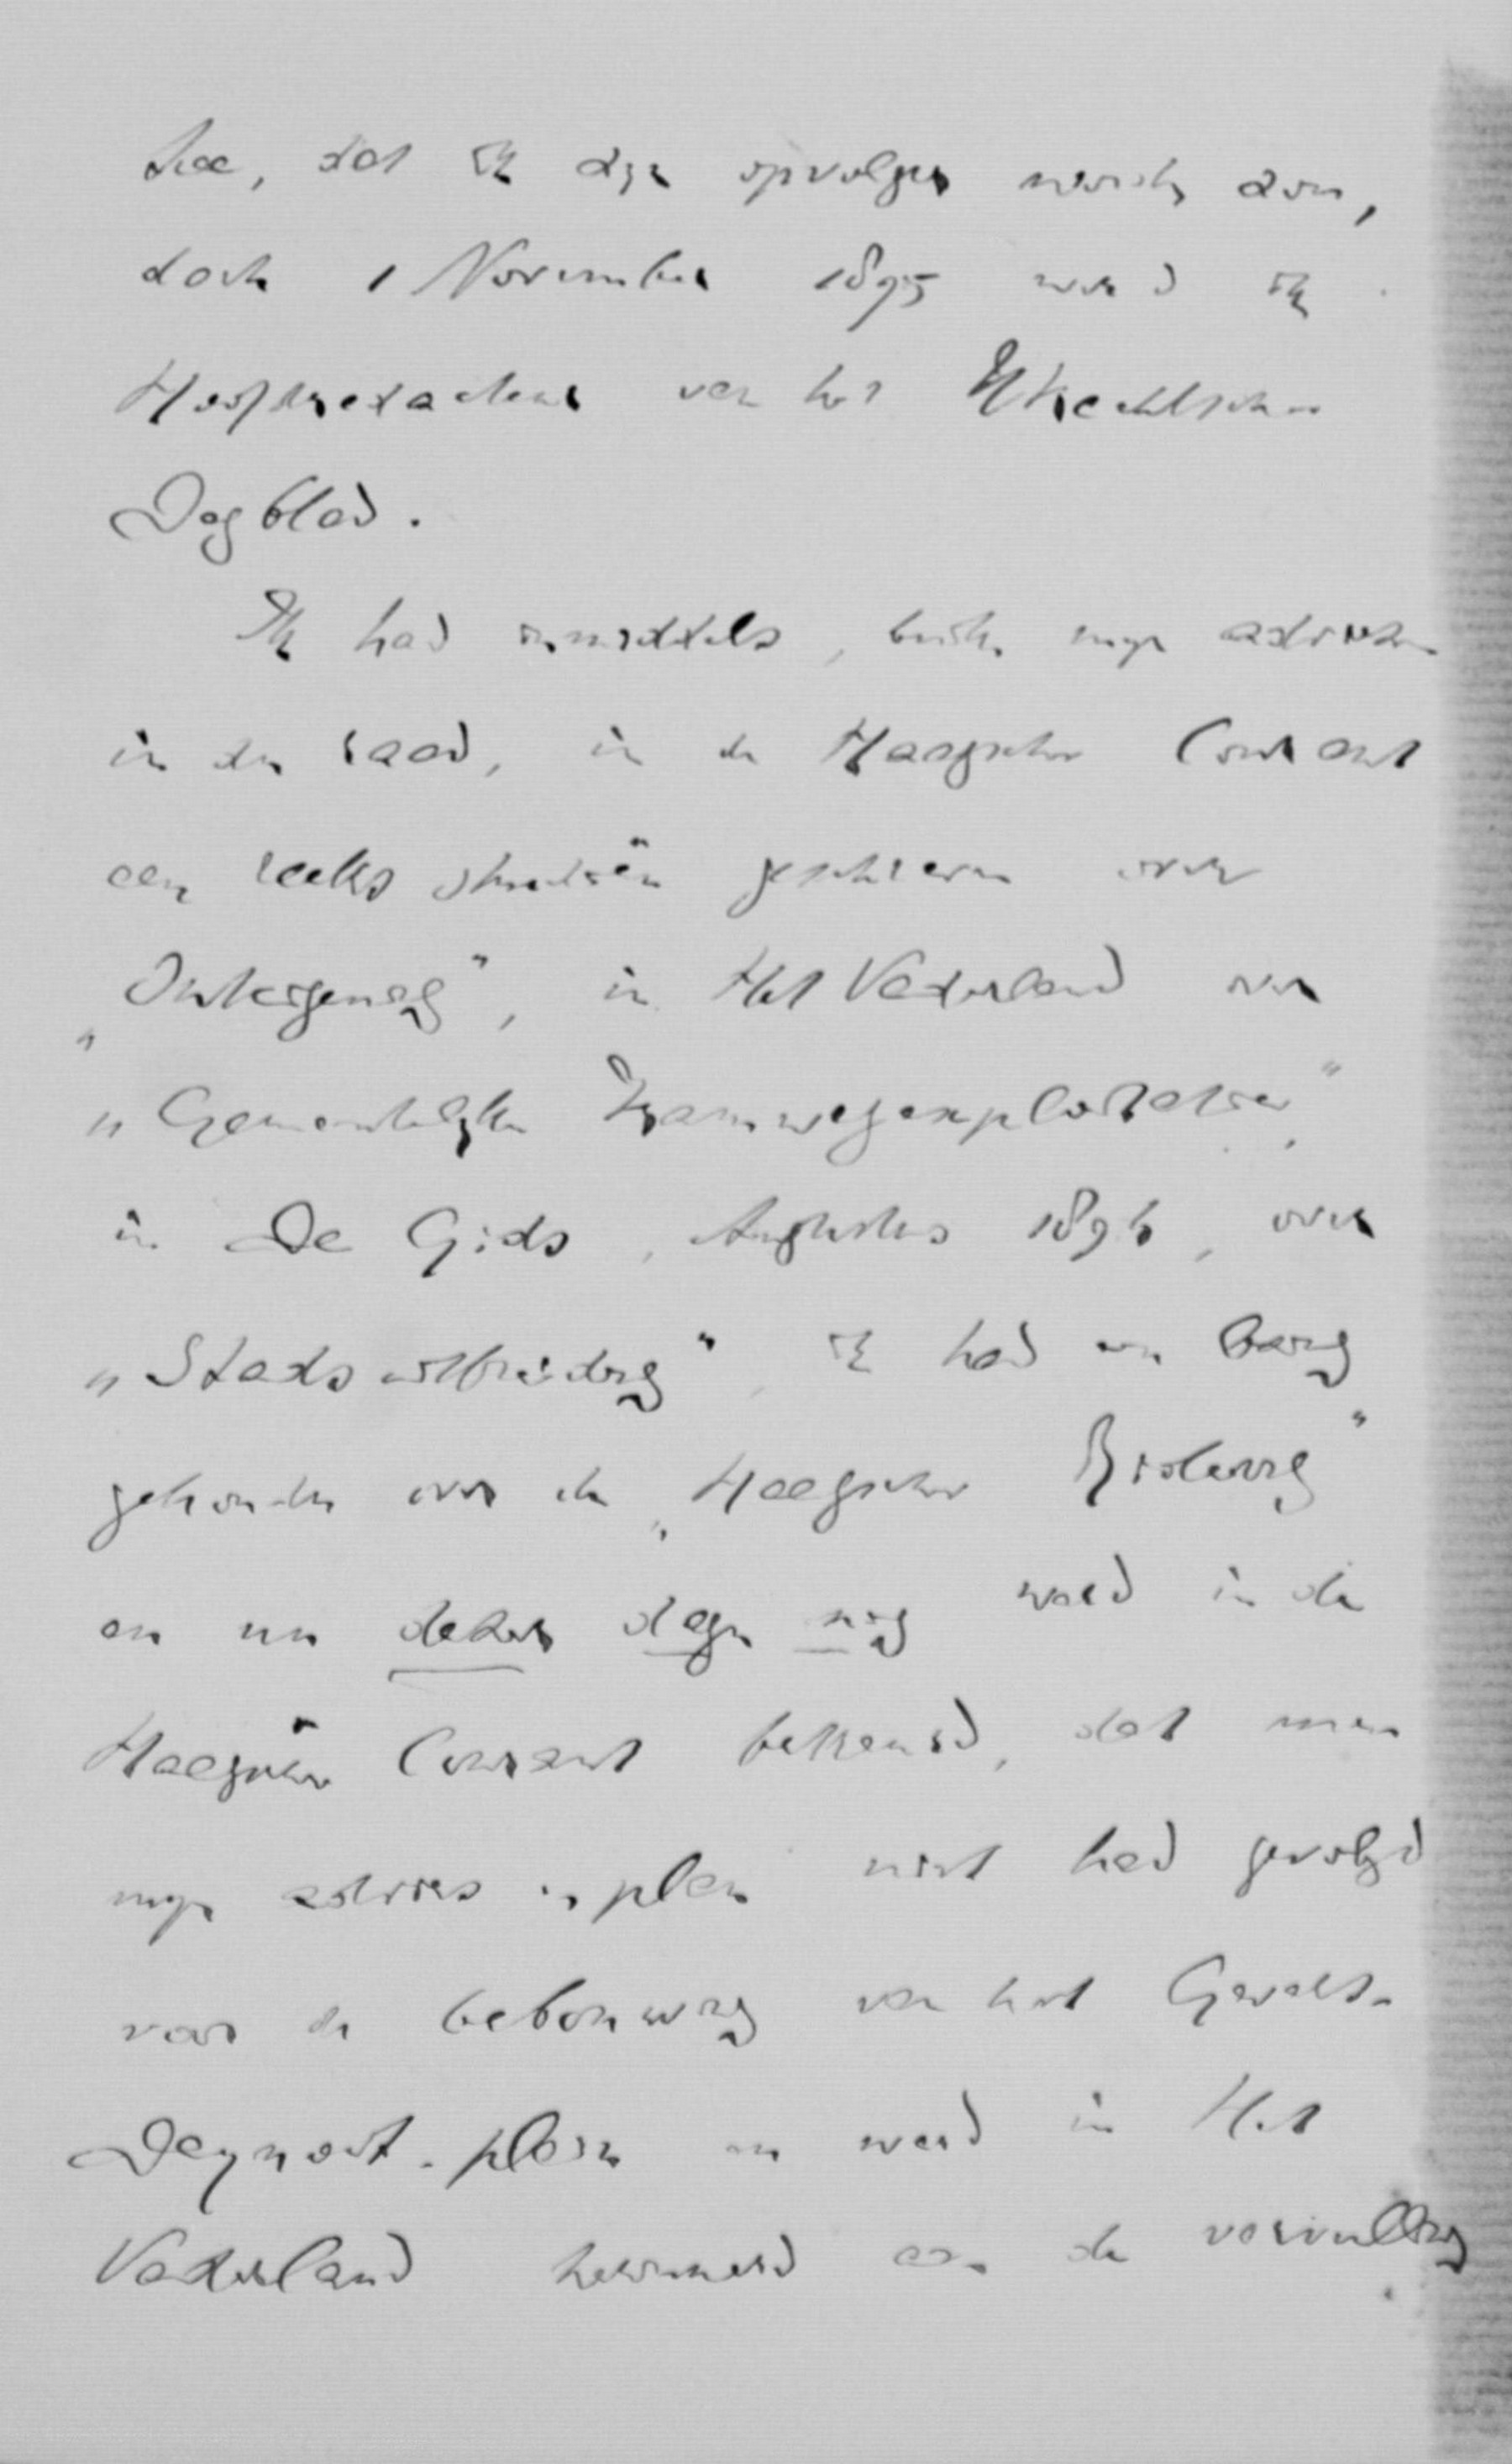 dat ik zijn opvolger worden zou,
doch 1 November 1895 werd ik
Hoofdredacteur van het Utrechtsche
Dagblad.
Ik had inmiddels, buiten mijn adviezen
in den raad, in de Haagsche Courant
een reeks studiën geschreven over
„Onteigening”, in Het Vaderland over
„Gemeentelijke Tramwegexploitatie”,
in De Gids, Augustus 1896, over
„Stadsuitbreiding”, ik had een
gehouden over de „Haagsche Riolering”
en nu dezer dagen nog werd in de
Haagsche Courant betreurd, dat men
mijn advies en plan niet had gevolgd
voor de bebouwing van het Gevers-
Deynoot-plein en werd in Het
Vaderland herinnerd aan de vervulling